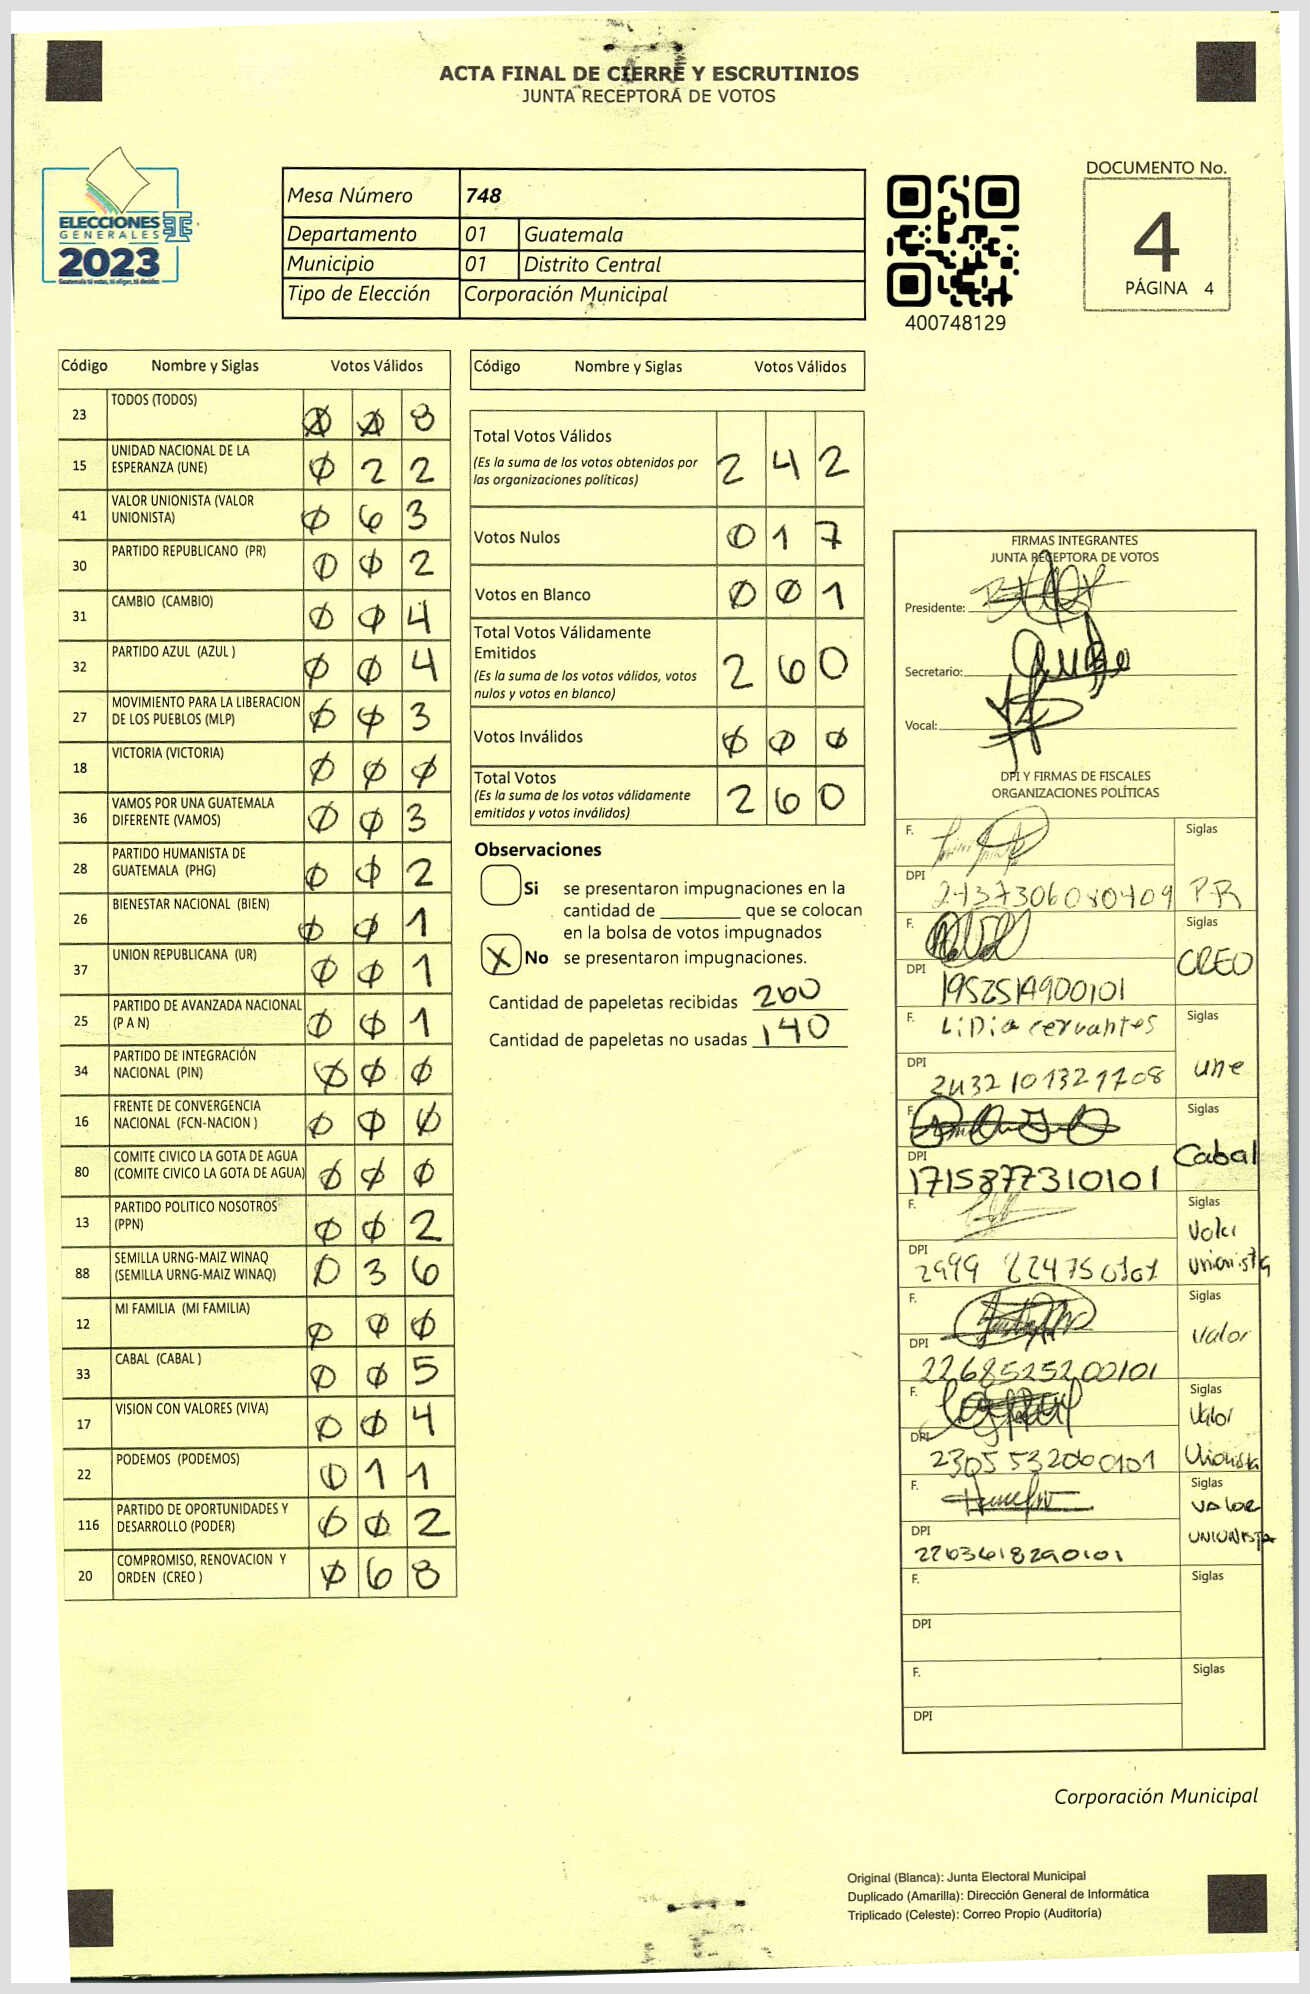 ACTA FINAL DE CIERRE Y ESCRUTINIOS
JUNTA RECEPTORA DE VOTOS
ELECCIONES
GENERALES
2023
Guatemala tú votas, tú eliges, tú decides
Mesa Número 748
Departamento 01 Guatemala
Municipio 01 Distrito Central
Tipo de Elección Corporación Municipal
400748129
DOCUMENTO No.
4
PÁGINA 4
Código Nombre y Siglas Votos Válidos
23 TODOS (TODOS) 0 0 8
15 UNIDAD NACIONAL DE LA ESPERANZA (UNE) 0 2 2
41 VALOR UNIONISTA (VALOR UNIONISTA) 0 6 3
30 PARTIDO REPUBLICANO (PR) 0 0 2
31 CAMBIO (CAMBIO) 0 0 4
32 PARTIDO AZUL (AZUL ) 0 0 4
27 MOVIMIENTO PARA LA LIBERACION DE LOS PUEBLOS (MLP) 0 0 3
18 VICTORIA (VICTORIA) 0 0 0
36 VAMOS POR UNA GUATEMALA DIFERENTE (VAMOS) 0 0 3
28 PARTIDO HUMANISTA DE GUATEMALA (PHG) 0 0 2
26 BIENESTAR NACIONAL (BIEN) 0 0 1
37 UNION REPUBLICANA (UR) 0 0 1
25 PARTIDO DE AVANZADA NACIONAL (P A N) 0 0 1
34 PARTIDO DE INTEGRACIÓN NACIONAL (PIN) 0 0 0
16 FRENTE DE CONVERGENCIA NACIONAL (FCN-NACION ) 0 0 0
80 COMITE CIVICO LA GOTA DE AGUA (COMITE CIVICO LA GOTA DE AGUA) 0 0 0
13 PARTIDO POLITICO NOSOTROS (PPN) 0 0 2
88 SEMILLA URNG-MAIZ WINAQ (SEMILLA URNG-MAIZ WINAQ) 0 3 6
12 MI FAMILIA (MI FAMILIA) 0 0 0
33 CABAL (CABAL ) 0 0 5
17 VISION CON VALORES (VIVA) 0 0 4
22 PODEMOS (PODEMOS) 0 1 1
116 PARTIDO DE OPORTUNIDADES Y DESARROLLO (PODER) 0 0 2
20 COMPROMISO, RENOVACION Y ORDEN (CREO ) 0 6 8
Código Nombre y Siglas Votos Válidos
Total Votos Válidos 2 4 2
(Es la suma de los votos obtenidos por
las organizaciones políticas)
Votos Nulos 0 1 7
Votos en Blanco 0 0 1
Total Votos Válidamente
Emitidos 2 6 0
(Es la suma de los votos válidos, votos
nulos y votos en blanco)
Votos Inválidos 0 0 0
Total Votos 2 6 0
(Es la suma de los votos válidamente
emitidos y votos inválidos)
Observaciones
Si se presentaron impugnaciones en la
cantidad de ________ que se colocan
en la bolsa de votos impugnados
X No se presentaron impugnaciones.
Cantidad de papeletas recibidas 200
Cantidad de papeletas no usadas 140
FIRMAS INTEGRANTES
JUNTA RECEPTORA DE VOTOS
Presidente:
Secretario:
Vocal:
DPI Y FIRMAS DE FISCALES
ORGANIZACIONES POLÍTICAS
F. Siglas
DPI PR
F. Siglas
CREO
DPI 1952514900101
F. Lidia cervantes Siglas
DPI 2432101321708 une
F. Siglas
Cabal
DPI 1715877310101
F. Siglas
Valor
DPI unionista
F. Siglas
Valor
DPI 2268525200101
F. Siglas
Valor
DPI 2305532000101 Unionista
F. Siglas
VALOR
DPI 2203618290101 UNIONISTA
F. Siglas
DPI
F. Siglas
DPI
Corporación Municipal
Original (Blanca): Junta Electoral Municipal
Duplicado (Amarilla): Dirección General de Informática
Triplicado (Celeste): Correo Propio (Auditoría)